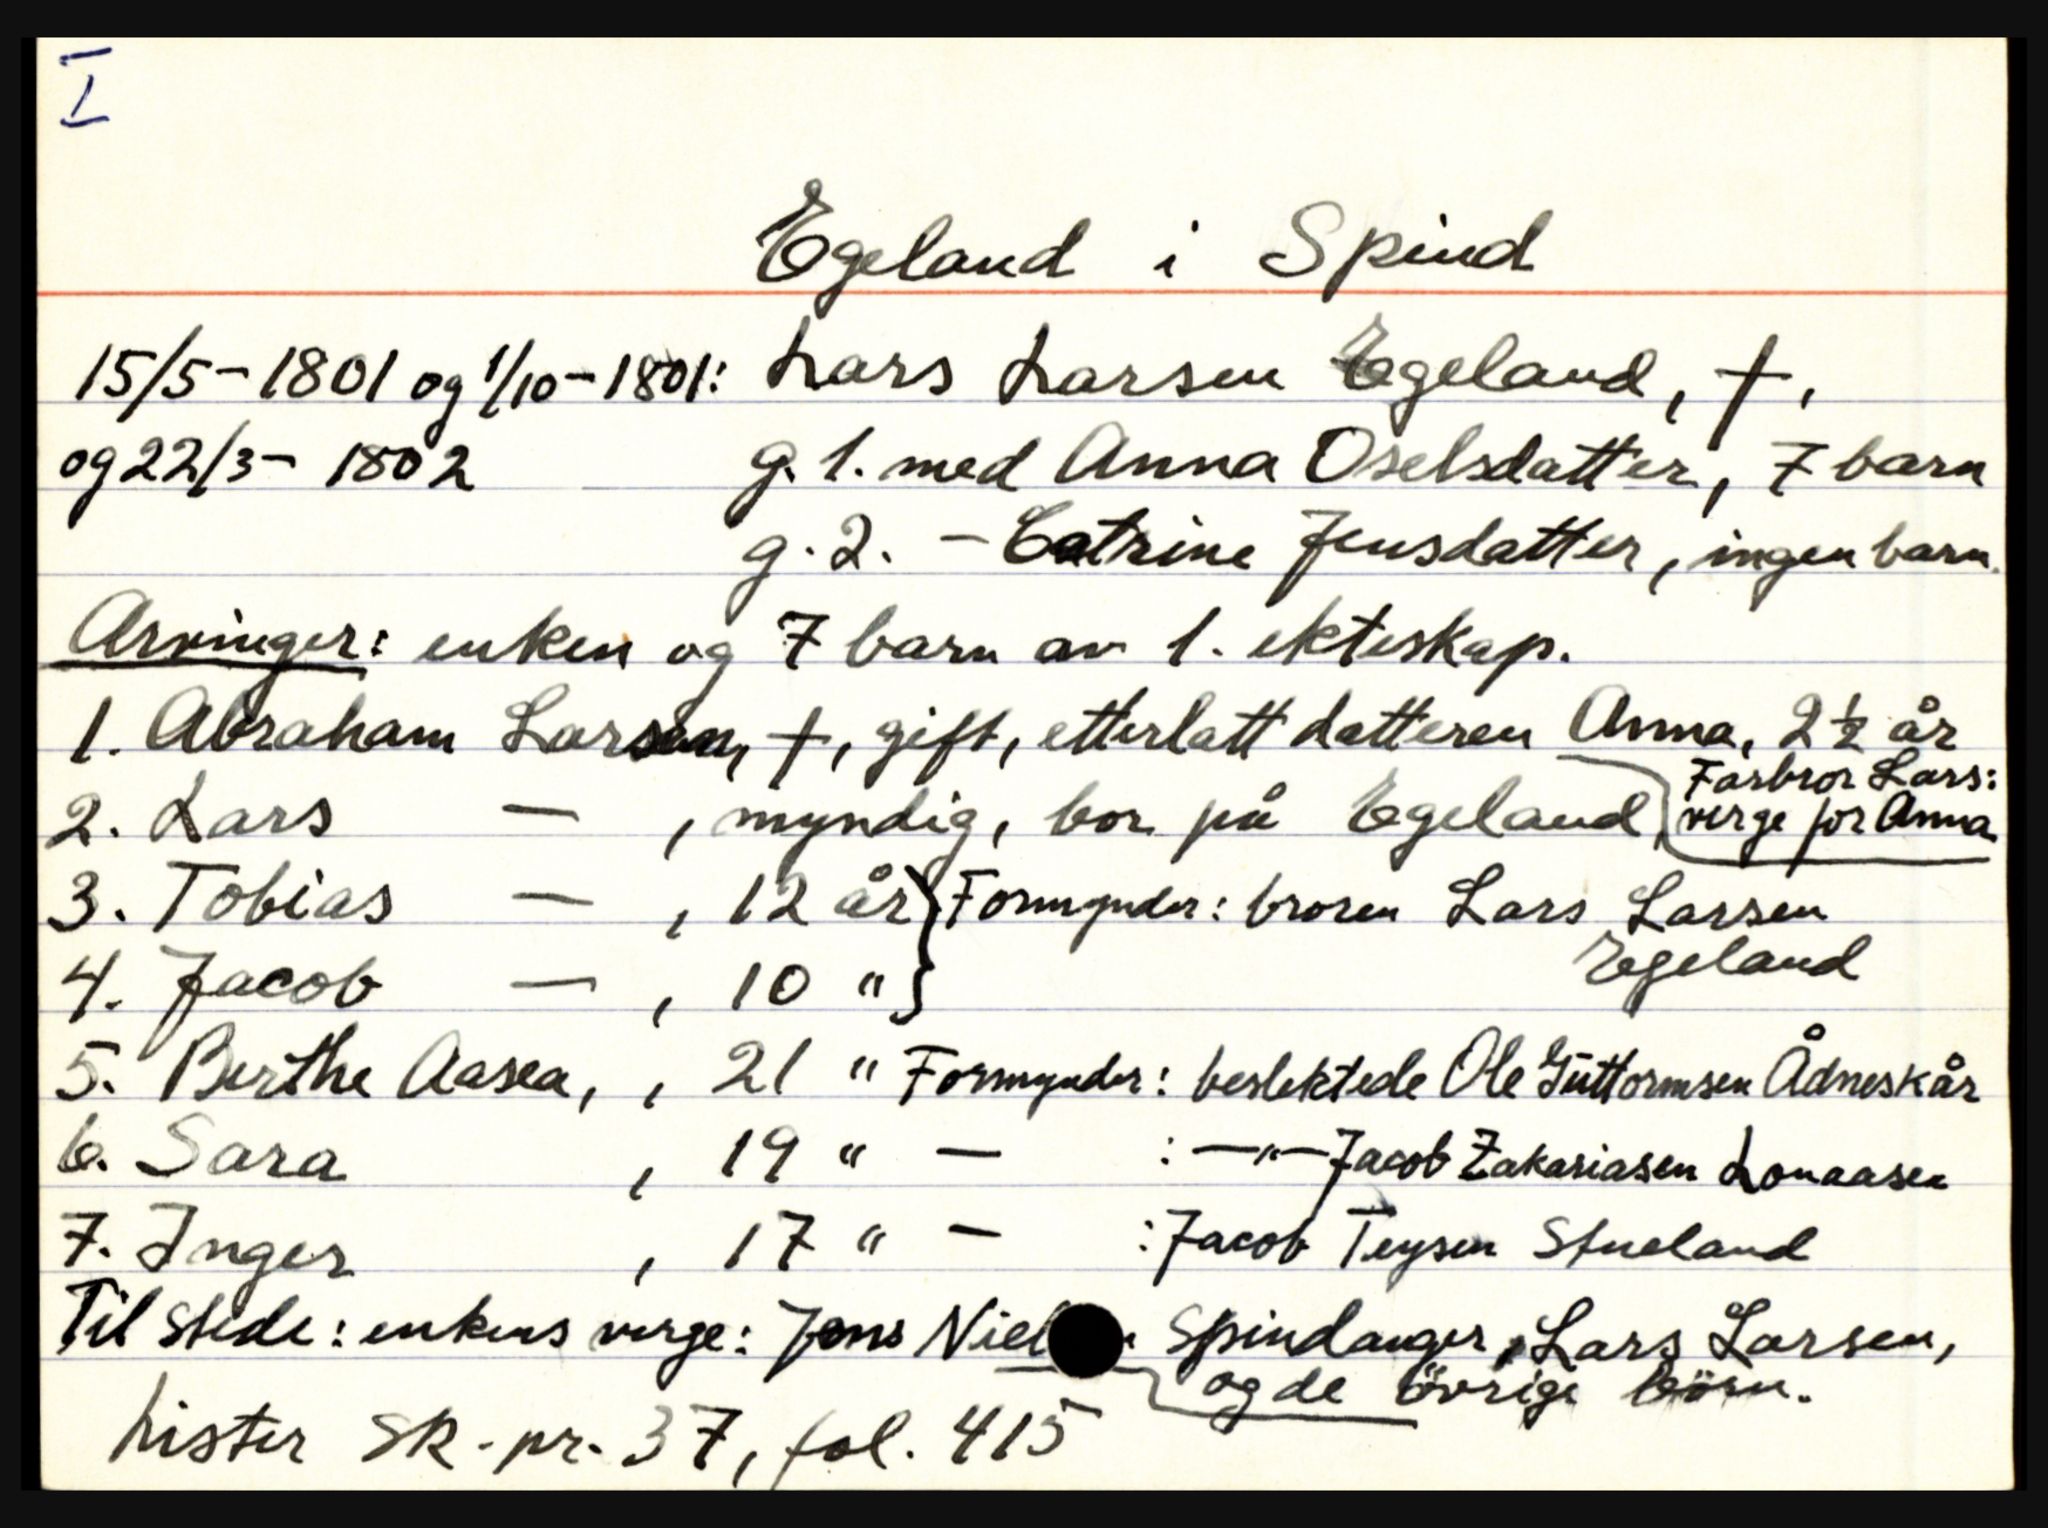 I
Egeland i Spind
15/5-1801 og 1/10-1801: Lars Larsen Egeland, †,
og 22/3-1802 g. 1. med Anna Oselsdatter, 7 barn
g. 2. - Catrine Jensdatter, ingen barn.
Arvinger: enken og 7 barn av 1. ekteskap.
1. Abraham Larsen, †, gift, etterlatt datteren Anna, 2 ½ år
Farbror Lars:
2. Lars — , myndig, bor på Egeland verge for Anna
3. Tobias — , 12 år } Formynder: broren Lars Larsen
Egeland
4. Jacob — , 10 " }
5. Berthe Aasea, , 21 " Formynder: beslektede Ole Guttormsen Ådneskår
6. Sara , 19 " — : —"— Jacob Zakariasen Lonaasen
7. Inger , 17 " — : Jacob Teysen Stueland
Til stede: enkens verge: Jens Spindanger, Lars Larsen,
og de övrige börn.
Lister Sk.-pr. 37, fol. 415